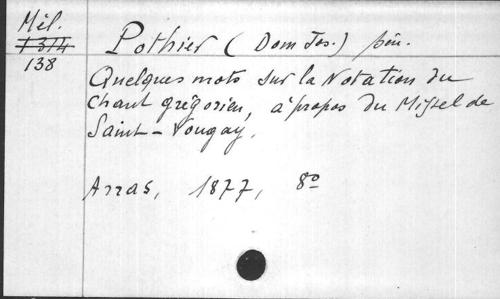 Mél.
1314
138
Pothier (Dom Jos.) bén.
Quelques mots sur la Notation du
chant grégorien, à propos du Missel de
Saint-Vougay.
Arras, 1877, 8º